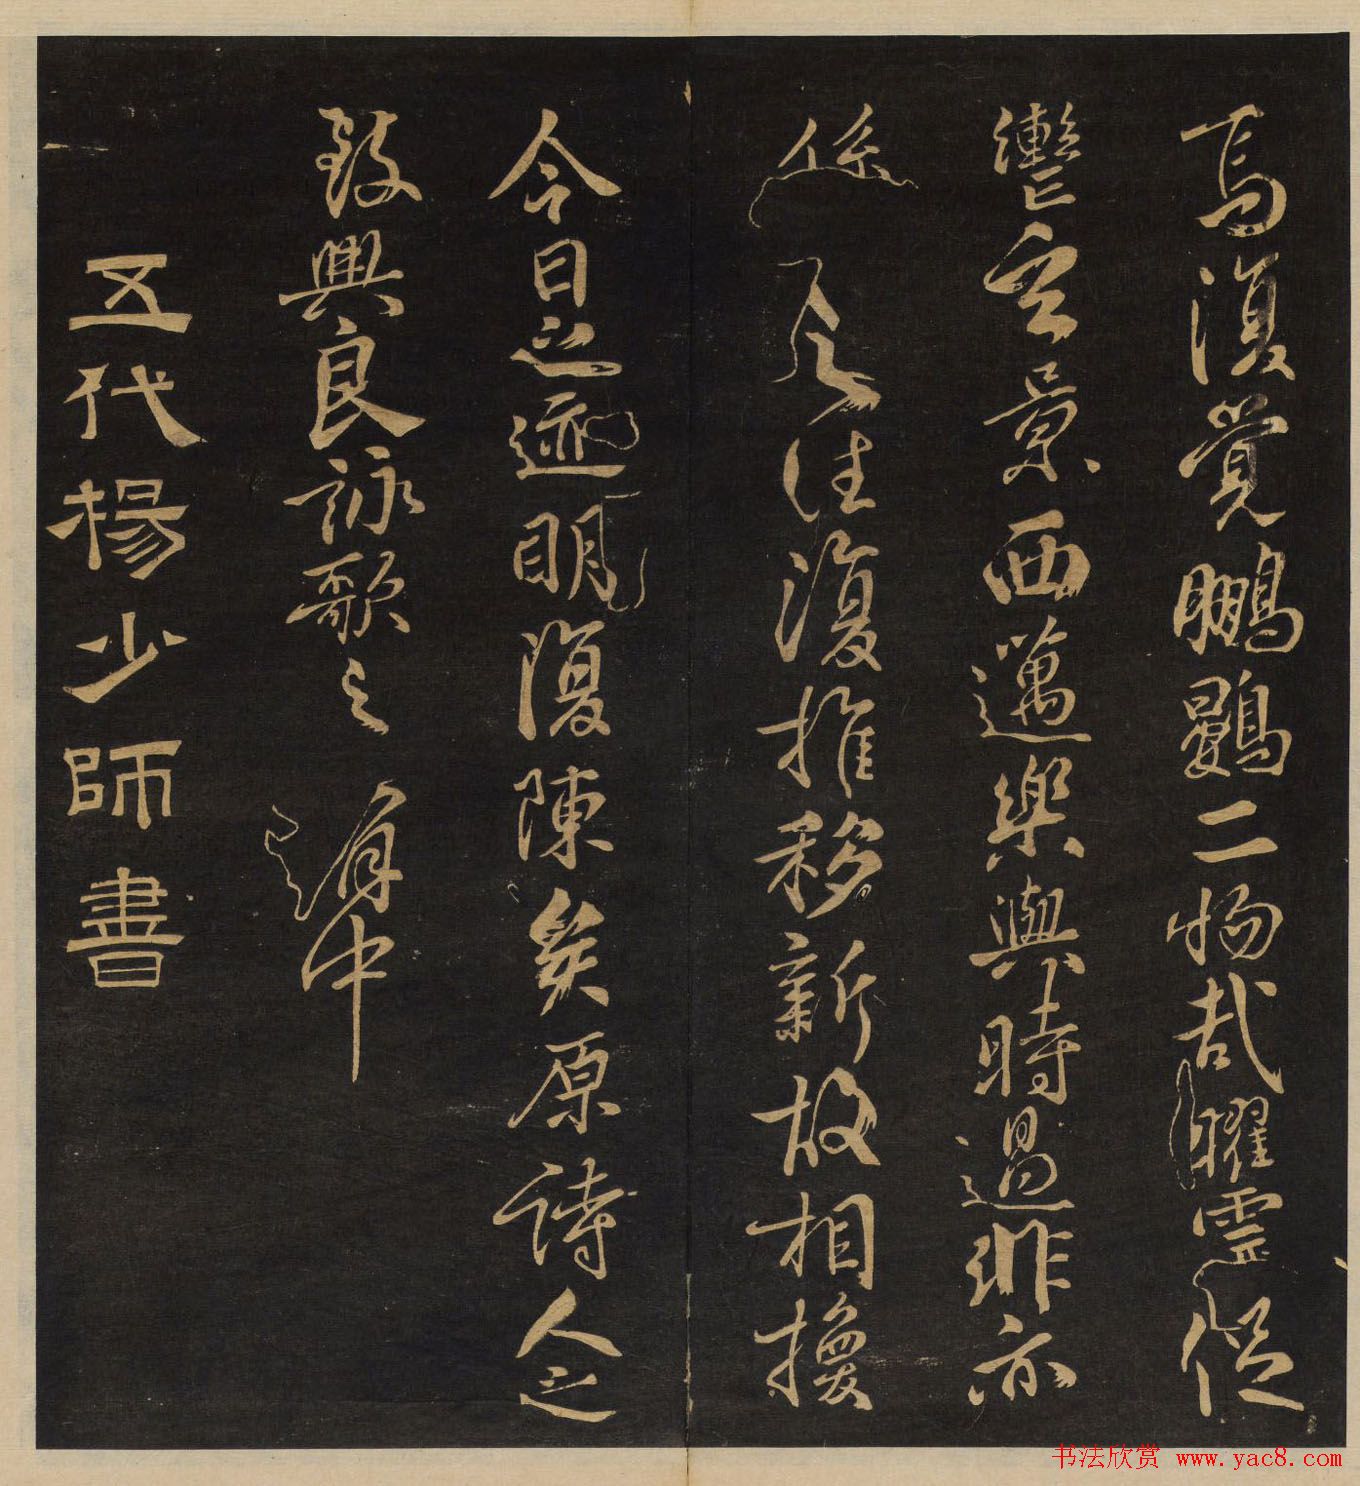 焉復覺鵬鷃二物哉曜靈促
轡玄景西邁樂與時過悲亦
係之往復推移新故相換
今日之迹明復陳矣原詩人之
致興良詠歌之有由
五代楊少師書
书法欣赏 www.yac8.com